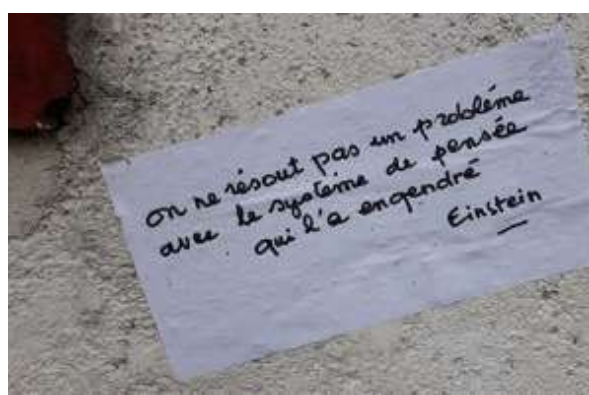 on ne résout pas un problème
avec le système de pensée
qui l'a engendré
Einstein